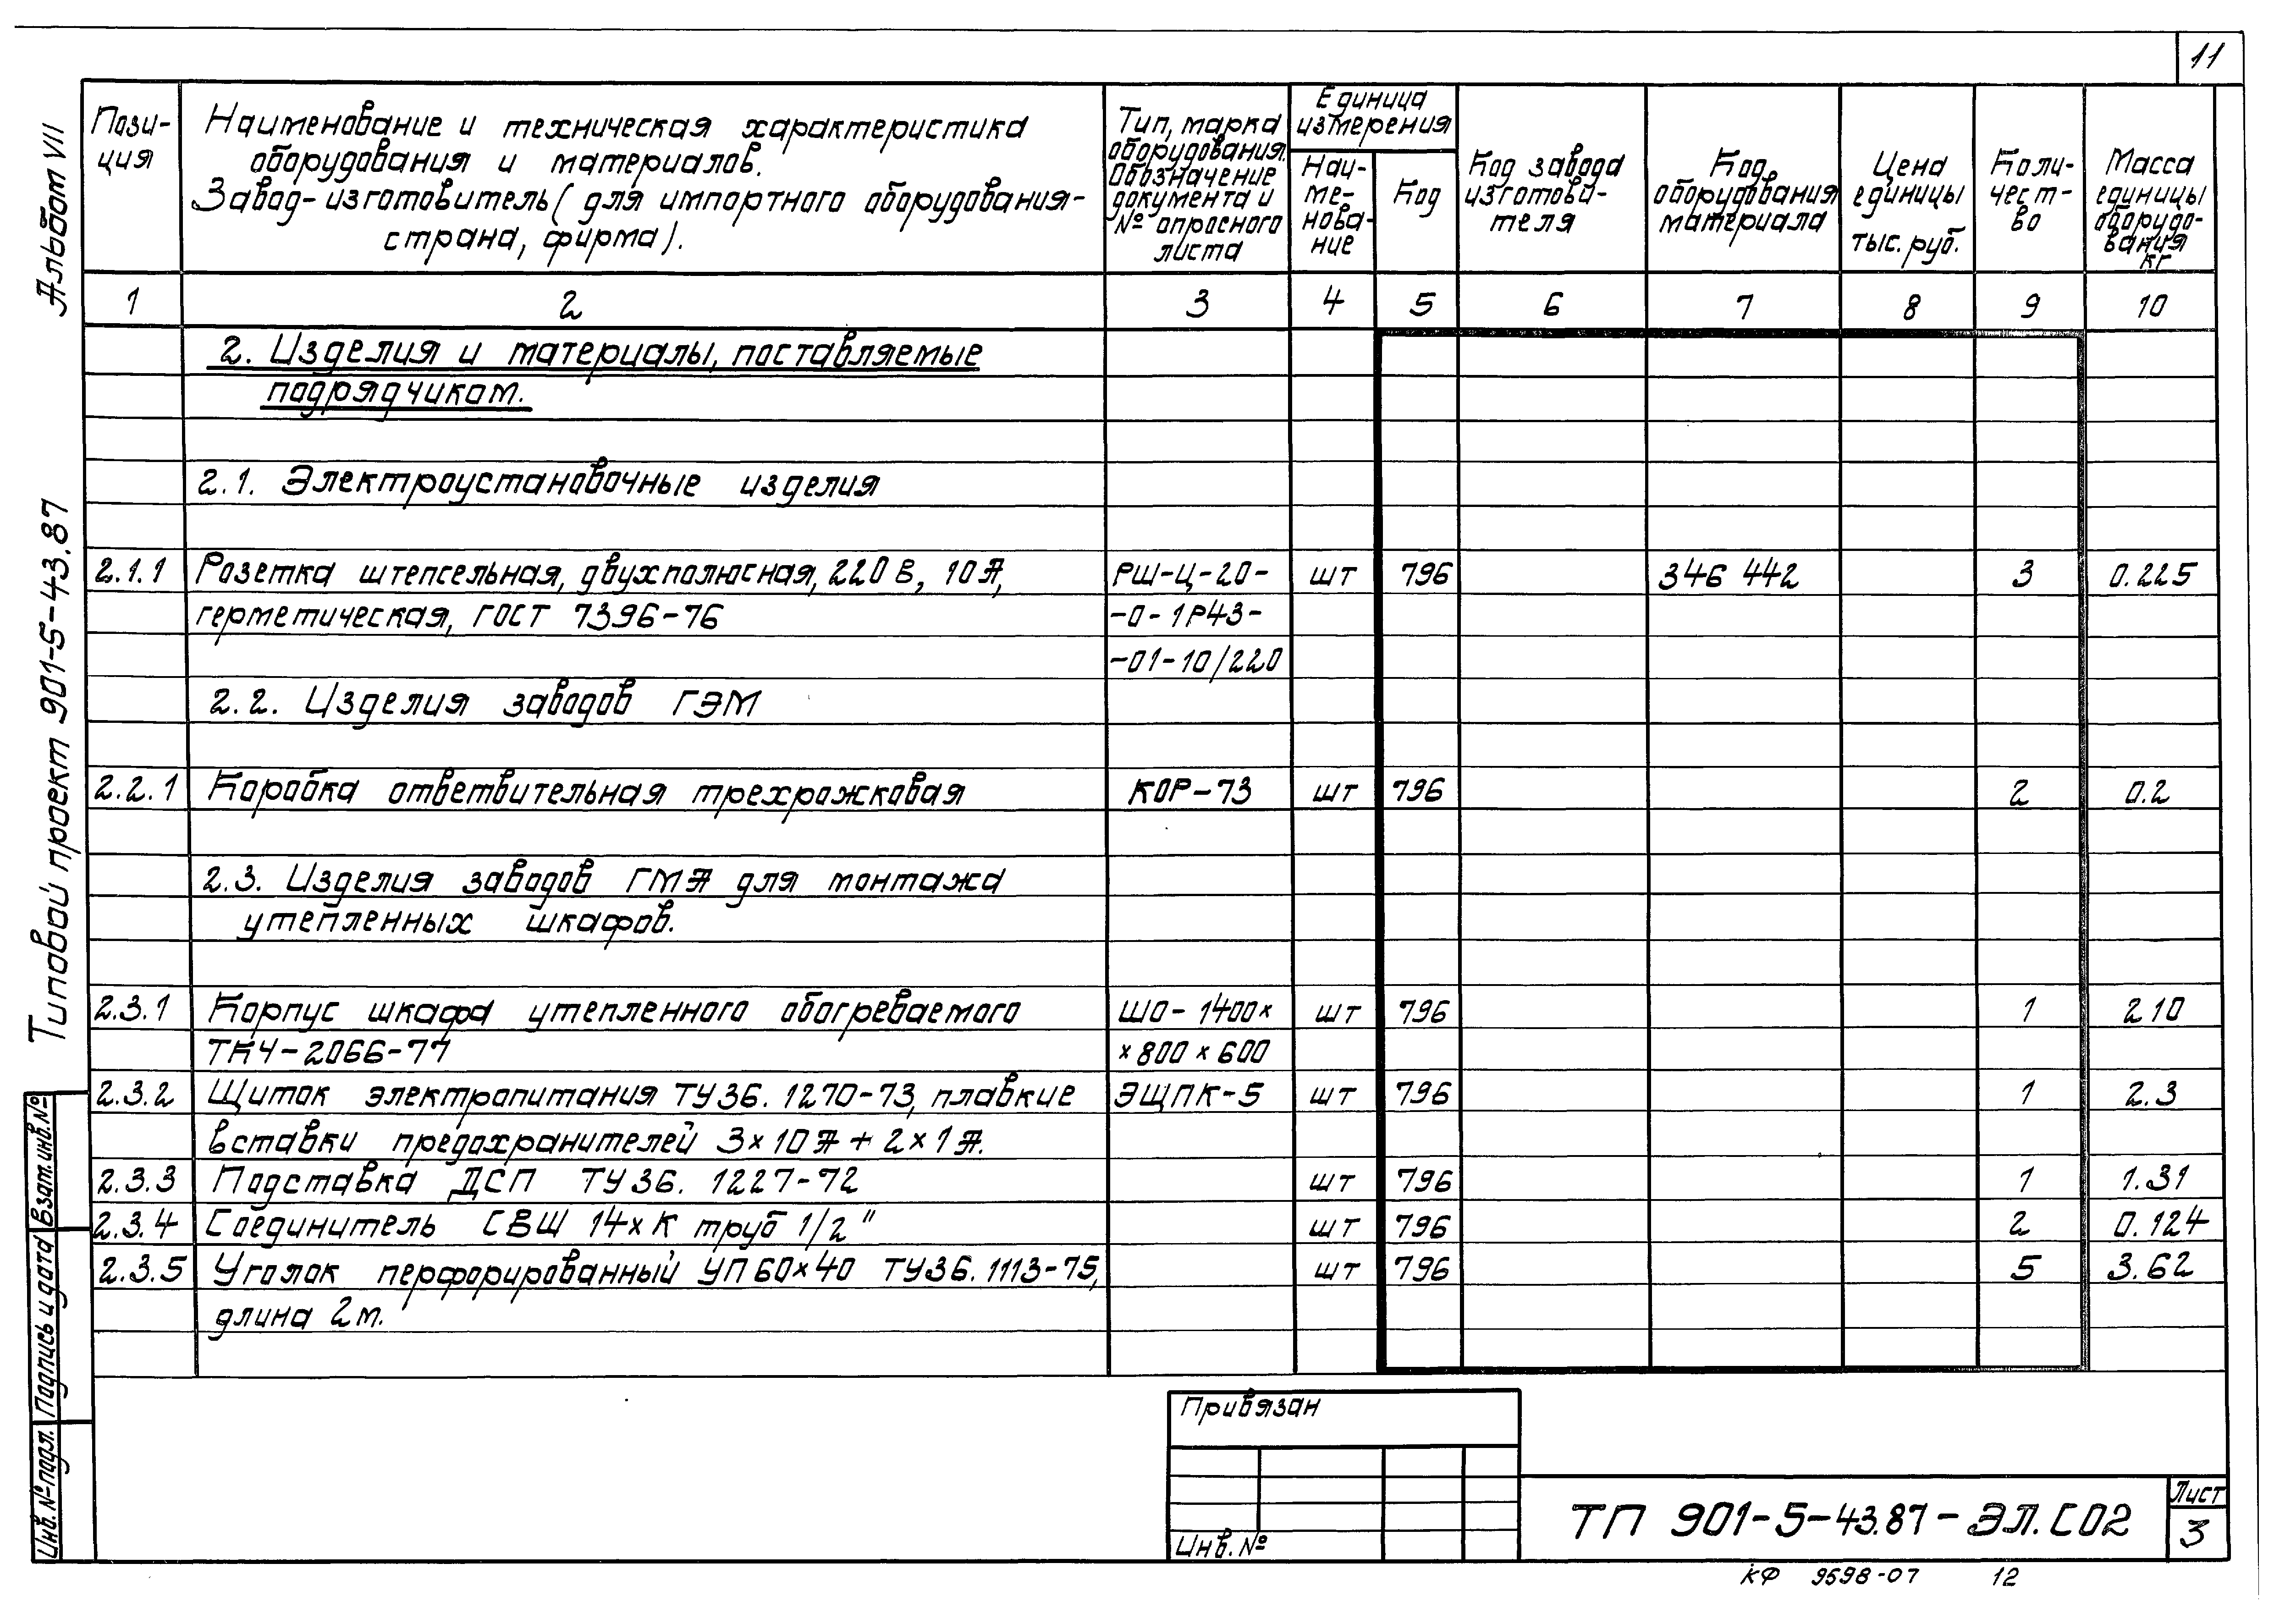 11
Альбом VII
Типовой проект 901-5-43.87
Взам. инв. №
Подпись и дата
Инв. № подл.
Пози-
ция
Наименование и техническая характеристика
оборудования и материалов.
Завод-изготовитель (для импортного оборудования-
страна, фирма).
Тип, марка
оборудования.
Обозначение
документа и
№ опросного
листа
Единица
измерения
Наи-
ме-
нова-
ние
Код
Код завода
изготови-
теля
Код
оборудования
материала
Цена
единицы
тыс. руб.
Коли-
чест-
во
Масса
единицы
оборудо-
вания
кг
1 2 3 4 5 6 7 8 9 10
2. Изделия и материалы, поставляемые
подрядчиком.
2.1. Электроустановочные изделия
2.1.1 Розетка штепсельная, двухполюсная, 220 В, 10 А, РШ-Ц-20- шт 796 346 442 3 0.225
герметическая, ГОСТ 7396-76 -0-1Р43-
-01-10/220
2.2. Изделия заводов ГЭМ
2.2.1 Коробка ответвительная трехрожковая КОР-73 шт 796 2 0.2
2.3. Изделия заводов ГМА для монтажа
утепленных шкафов.
2.3.1 Корпус шкафа утепленного обогреваемого ШО-1400× шт 796 1 210
ТК4-2066-77 ×800×600
2.3.2 Щиток электропитания ТУ36.1270-73, плавкие ЭЩПК-5 шт 796 1 2.3
вставки предохранителей 3×10 А + 2×1 А.
2.3.3 Подставка ДСП ТУ36.1227-72 шт 796 1 1.31
2.3.4 Соединитель СВЩ 14×К труб 1/2" шт 796 2 0.124
2.3.5 Уголок перфорированный УП60×40 ТУ36.1113-75, шт 796 5 3.62
длина 2м.
Привязан
Инв. №
ТП 901-5-43.87-ЭЛ.СО2
Лист
3
КФ 9598-07 12